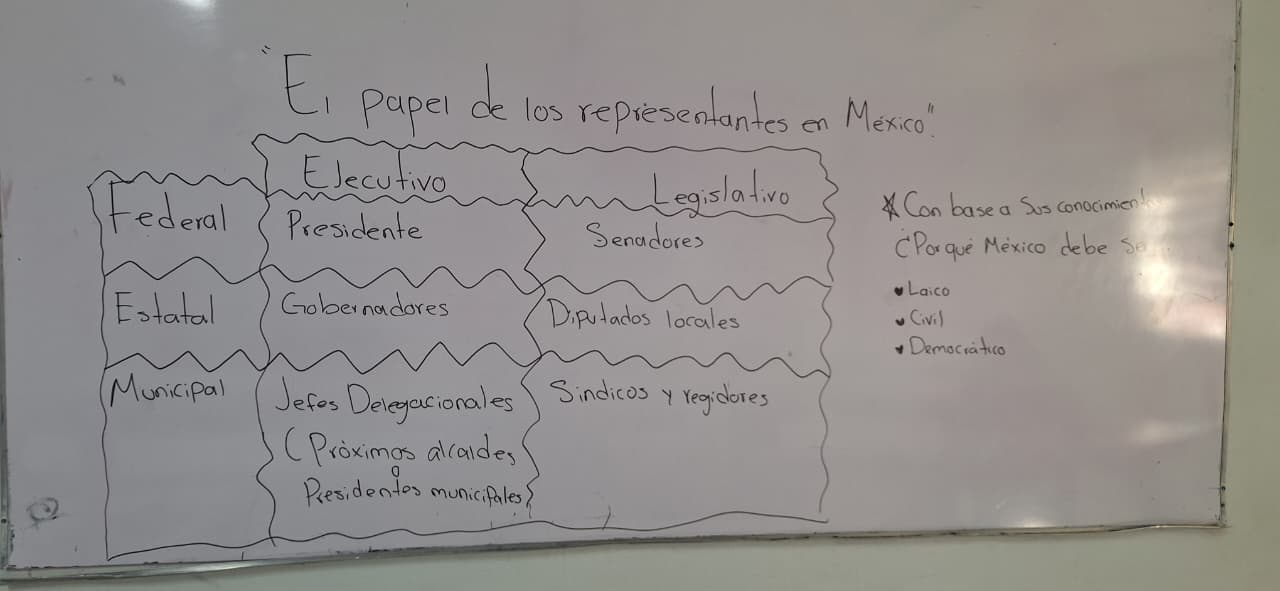 "El papel de los representantes en México".
Ejecutivo Legislativo
Federal Presidente Senadores
Estatal Gobernadores Diputados locales
Municipal Jefes Delegacionales Sindicos y regidores
(Próximos alcaldes
o
Presidentes municipales)
* Con base a sus conocimient
¿Por qué México debe se
Laico
Civil
Democrático